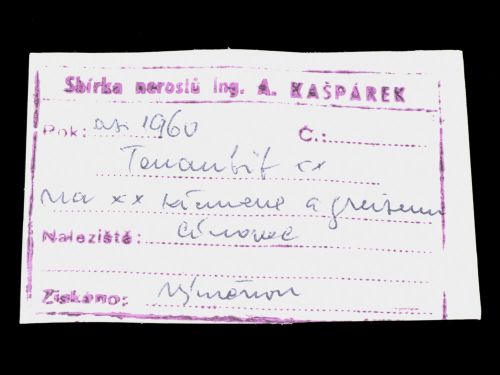 Sbírka nerostů ing. A. KAŠPÁREK
Rok: asi 1960 Č.:
Tenantit xx
na xx křemene a greisenu
Naleziště: Cínovec
Získáno: výměnou